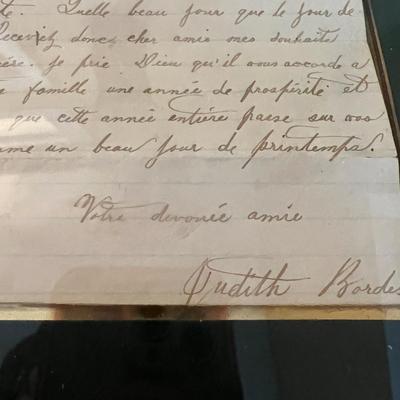 te. Quelle beau jour que le jour de
Recevez donc cher amis mes souhaits
ère. Je prie Dieu qu'il vous accorde a
e famille une année de prospérité et
que cette année entière passe sur vos
me un beau jour de printemps.
Votre devouée amie
Judith Bordes